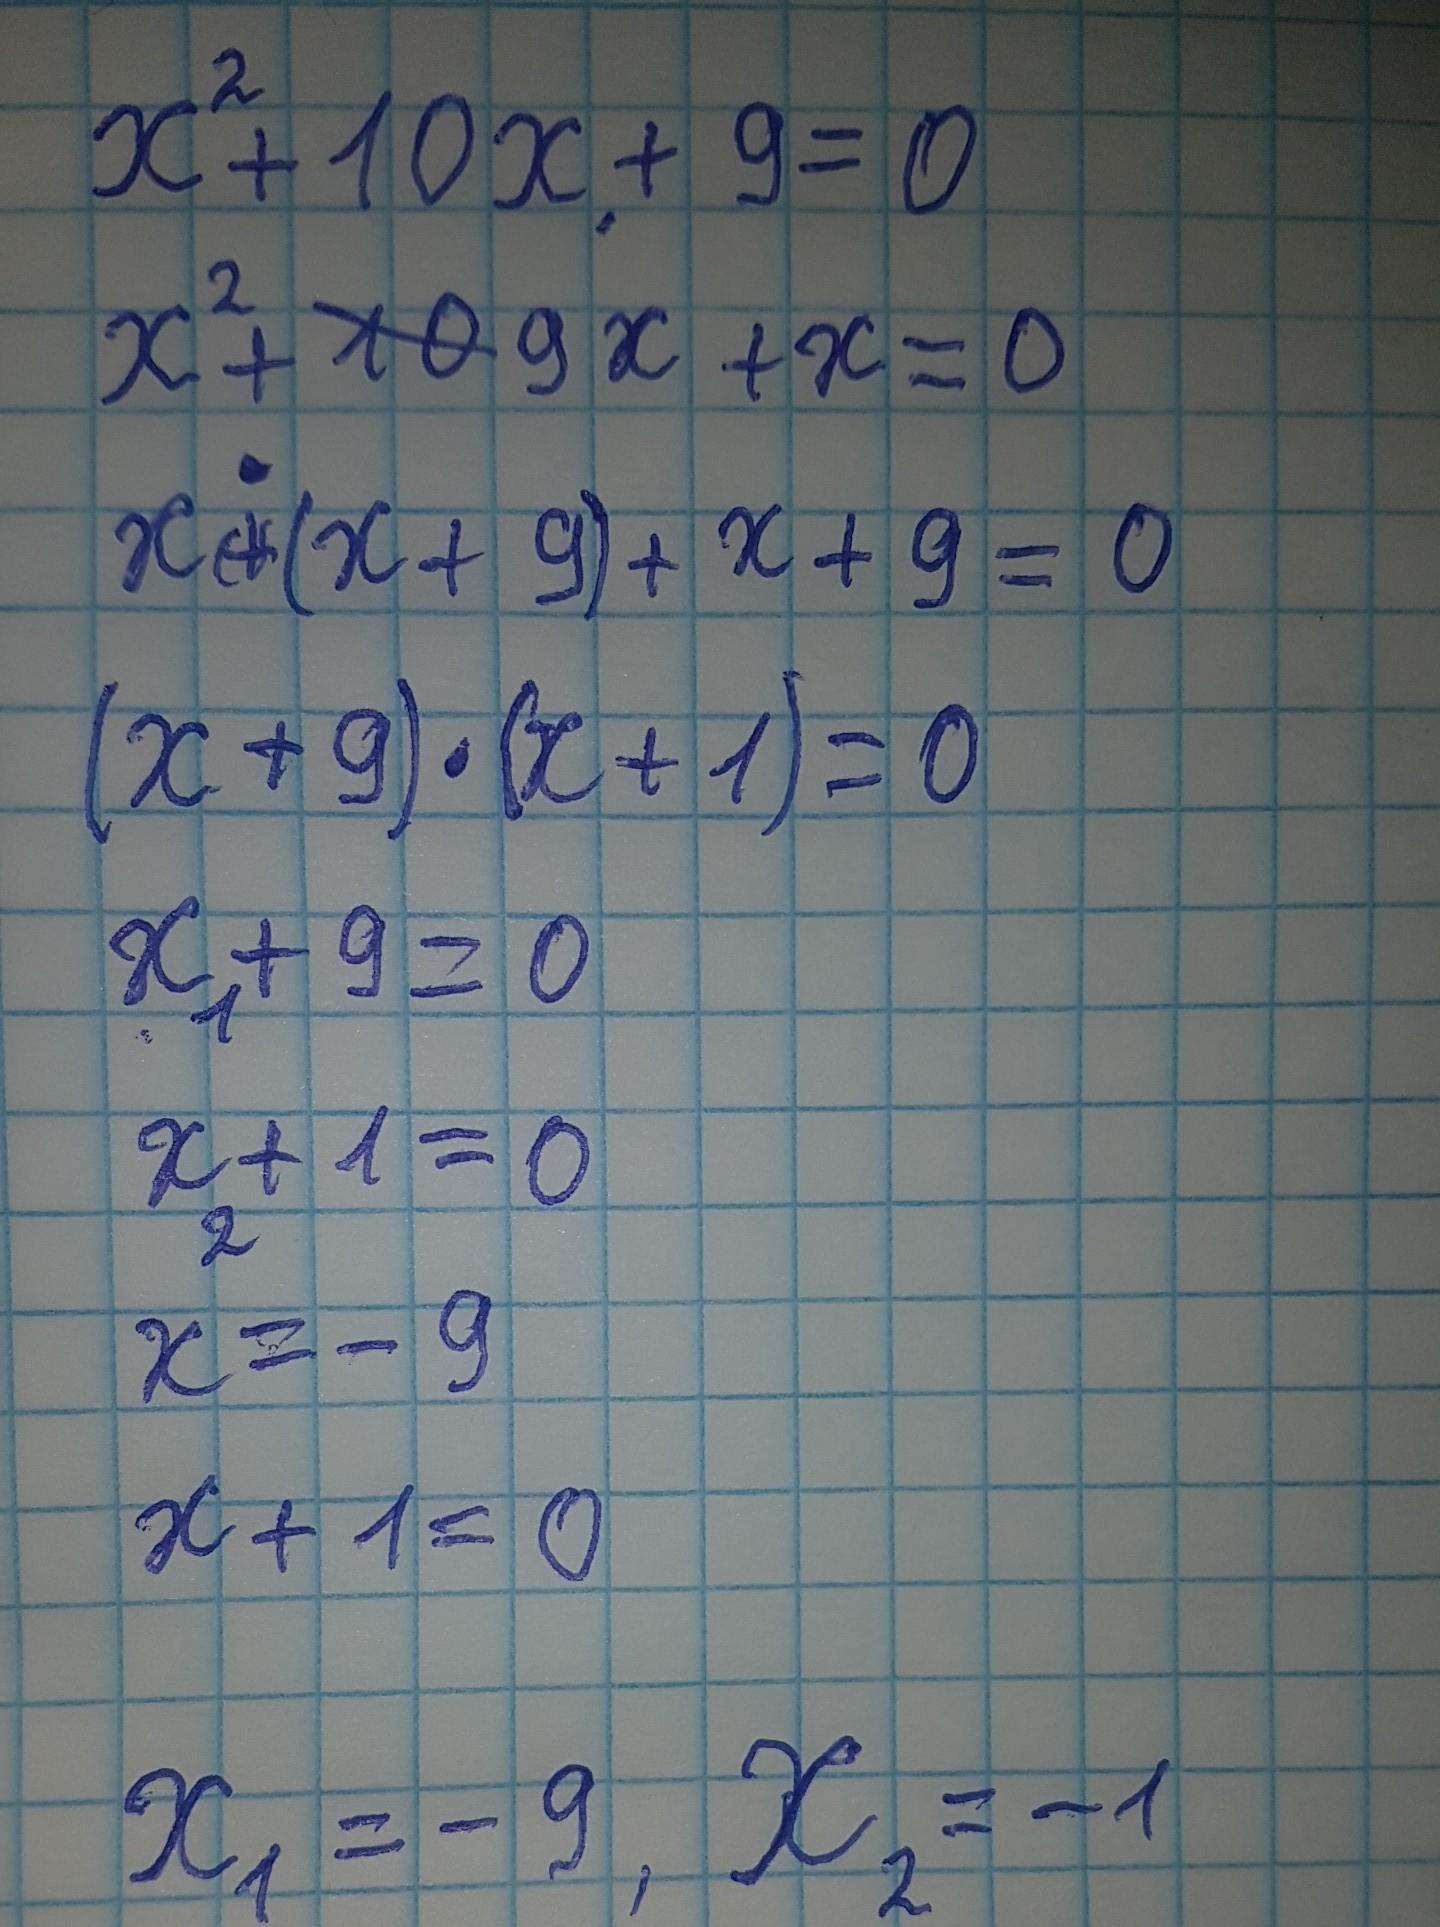 x² + 10x + 9 = 0
x² + 9x + x = 0
x · (x + 9) + x + 9 = 0
(x + 9) · (x + 1) = 0
x₁ + 9 = 0
x₂ + 1 = 0
x = - 9
x + 1 = 0
x₁ = - 9, x₂ = - 1